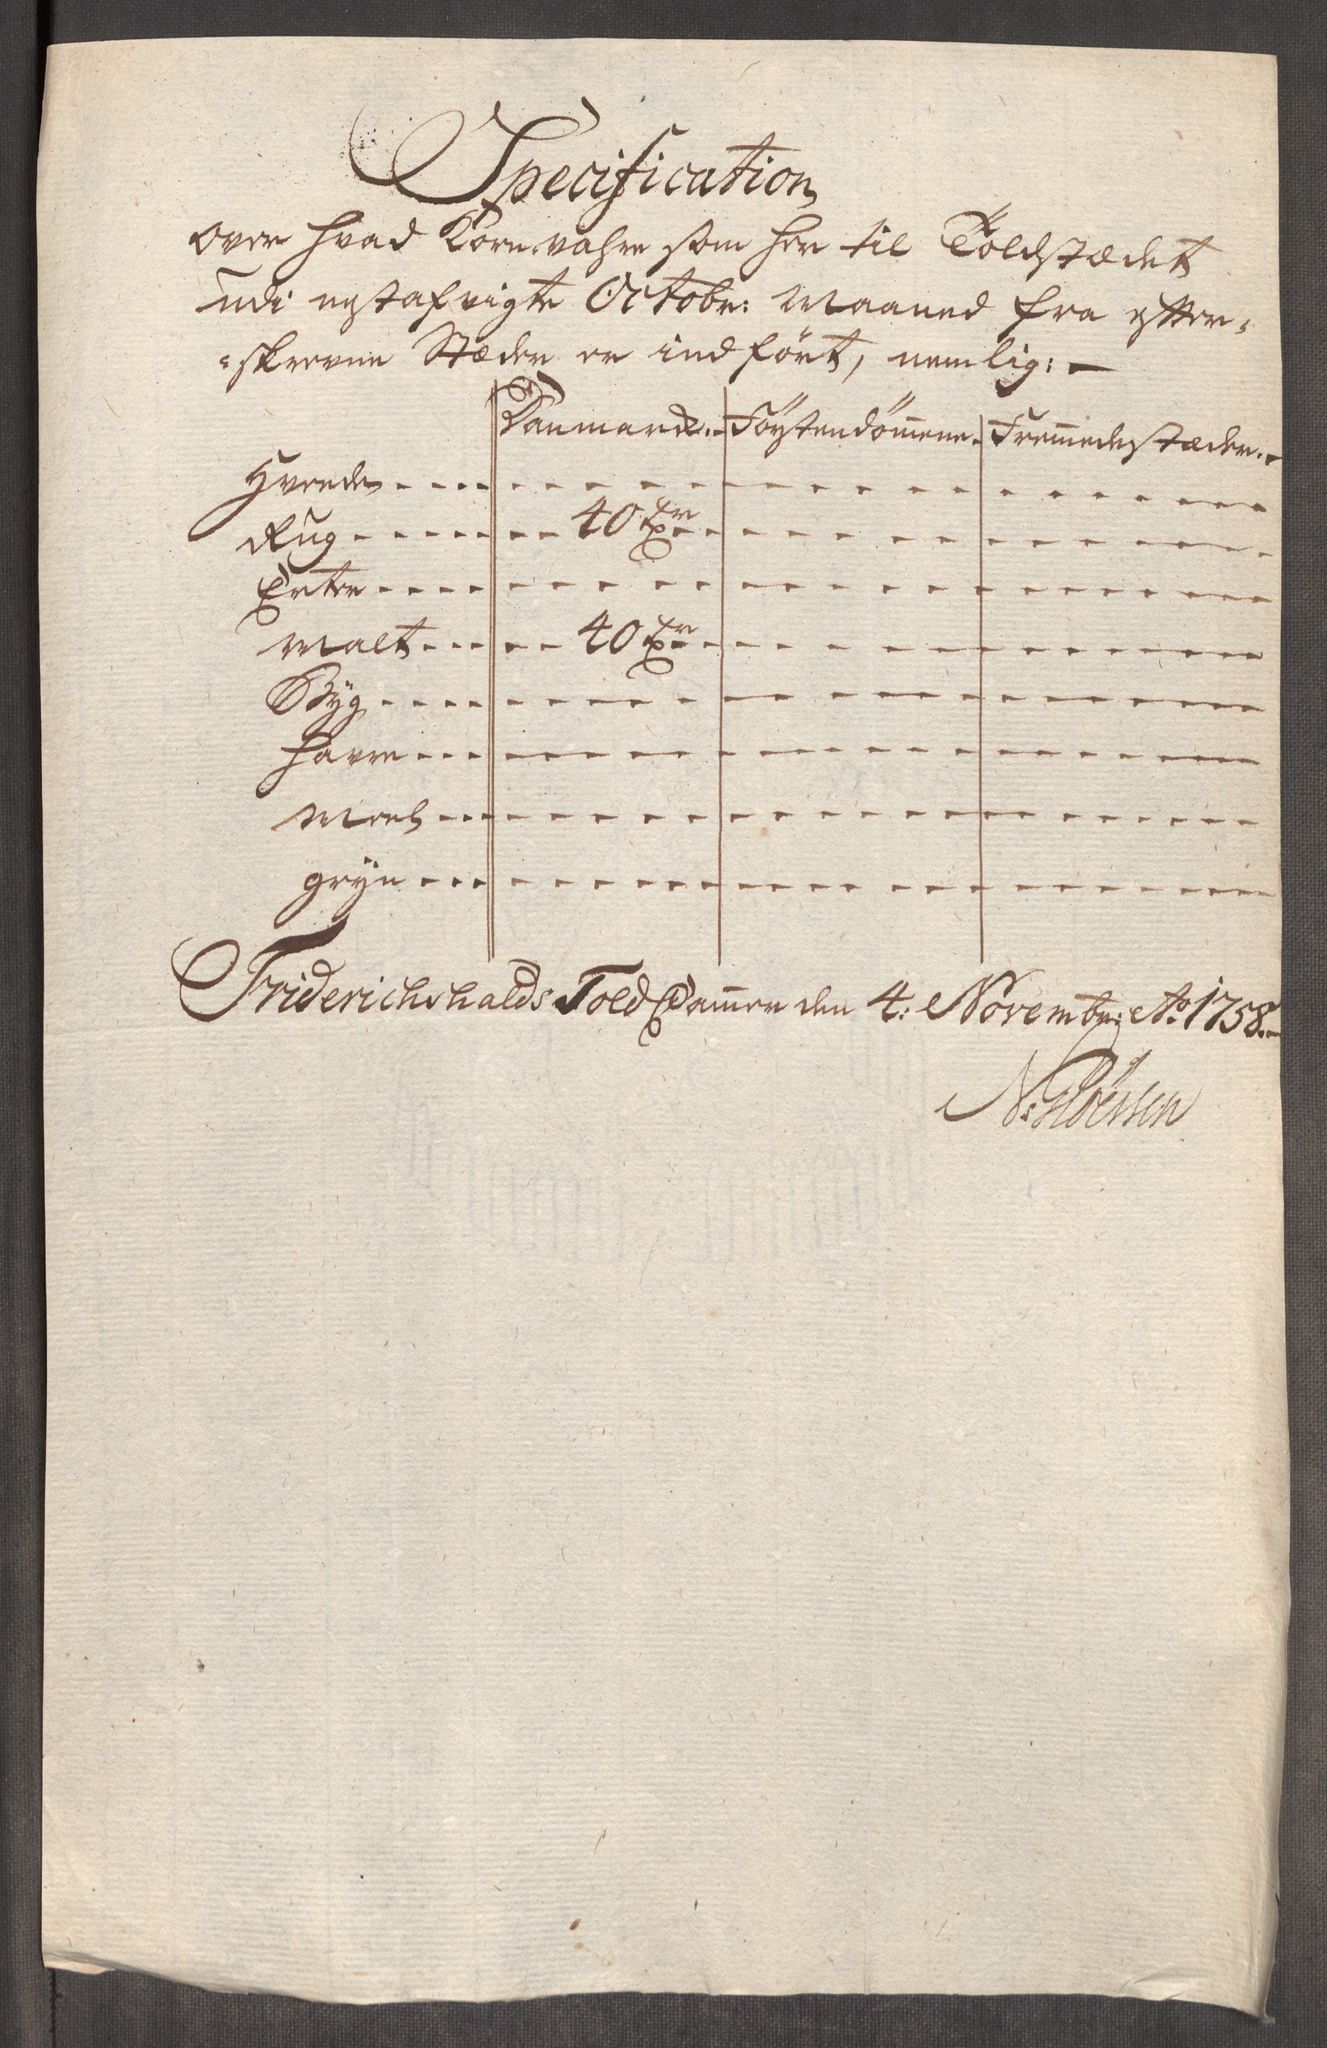 Specification
over hvad Kornvahre som her til Toldstædet
udi nestafvigte Octobr: Maaned fra efter-
-skrevne Stæder er indført, nemlig:
Danmark. Førstendømmene. Fremmede stæder.
Hvede
Rug 40 Tr
Erter
Malt 40 Tr
Byg
Havre
Meel
Gryn
Friderichshalds Told Cammer den 4: Novembr: Ao 1758.